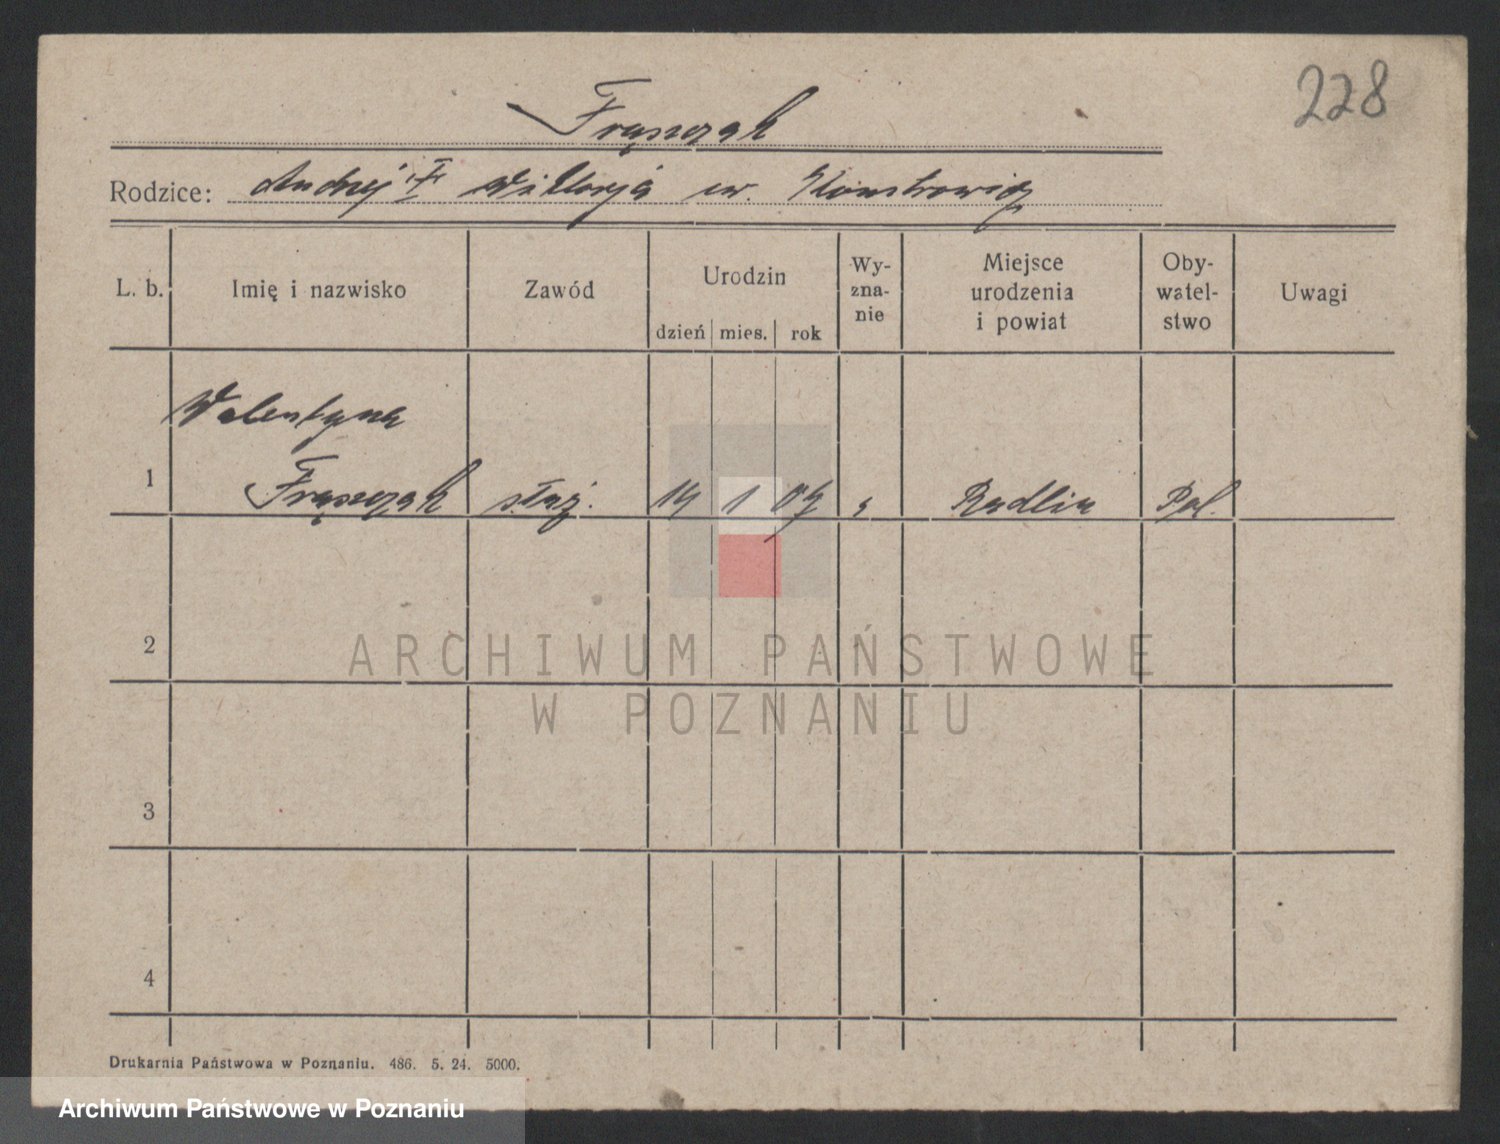 228
Frąszczak
Rodzice: Andrzej i Wiktorja ur.
L. b. Imię i nazwisko Zawód Urodzin dzień mies. rok Wy-zna-nie Miejsce urodzenia i powiat Oby-watel-stwo Uwagi
Walentyna
1 Frąszczak służ. 14 1 07 Radlin Pol.
2
ARCHIWUM PAŃSTWOWE
W POZNANIU
3
4
Drukarnia Państwowa w Poznaniu. 486. 5. 24. 5000.
Archiwum Państwowe w Poznaniu